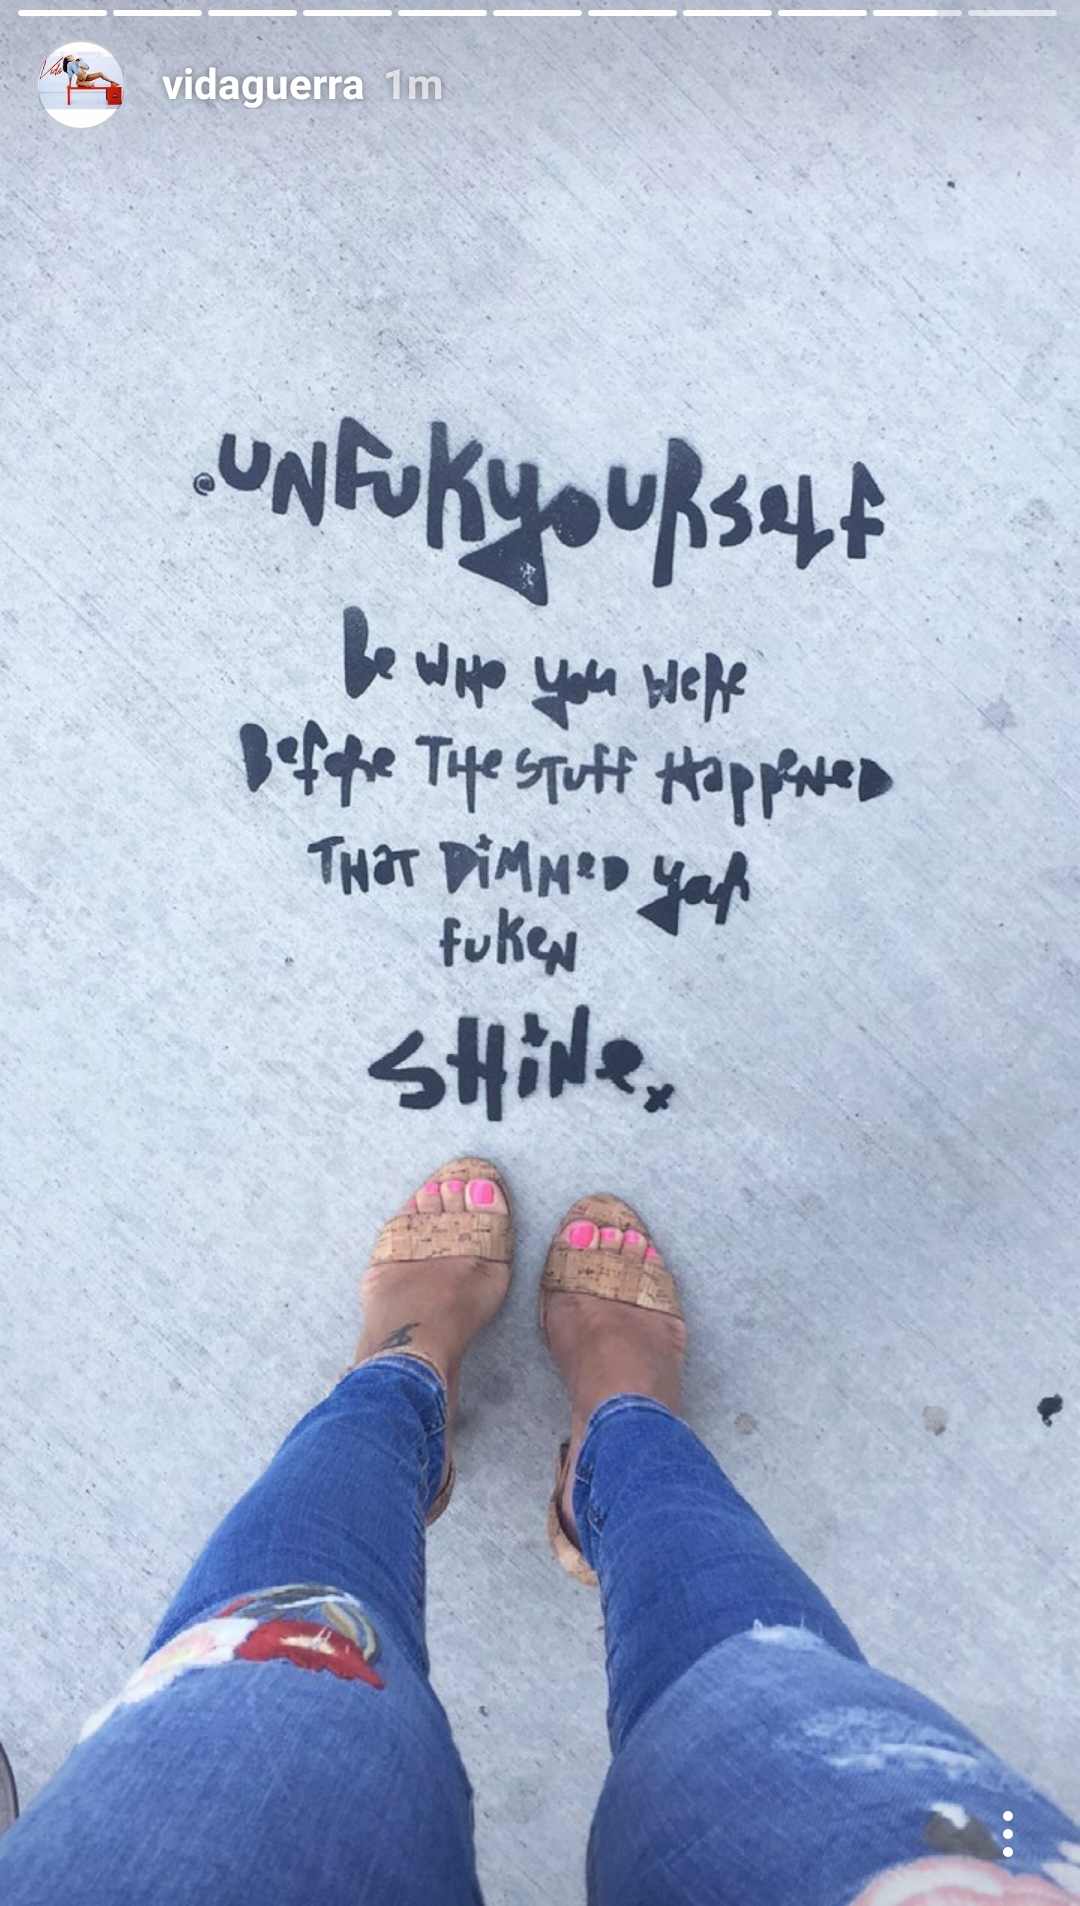 Vida
vidaguerra 1m
@UNFUKYOURSELF
Be WHO you WeRe
BefoRe THe STuff HappeNeD
THaT DiMMeD YouR
fuKeN
SHiNe.x